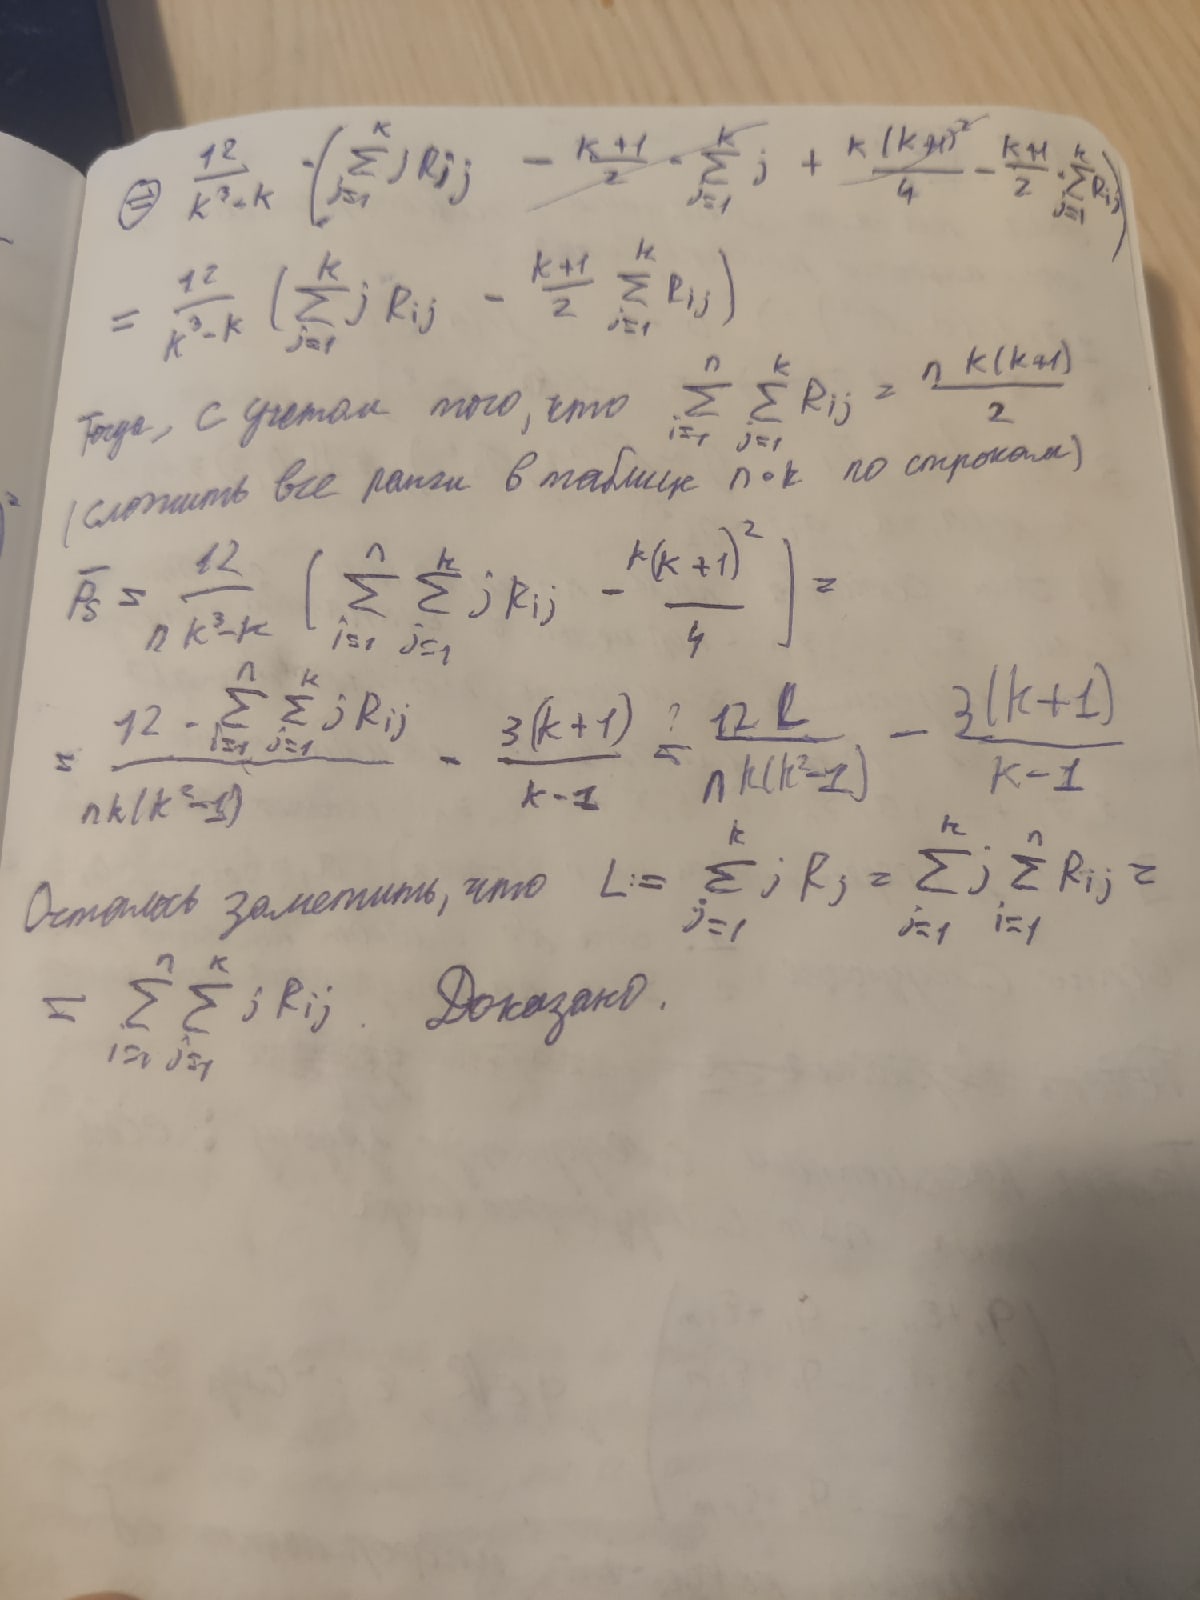 ⊜ 12/(k³-k) · (∑_{j=1}^{k} jR_{ij} - (k+1)/2 · ∑_{j=1}^{k} j + k(k+1)²/4 - (k+1)/2 · ∑_{j=1}^{k} R_{ij})
= 12/(k³-k) (∑_{j=1}^{k} j R_{ij} - (k+1)/2 ∑_{j=1}^{k} R_{ij})
Тогда, с учетом того, что ∑_{i=1}^{n} ∑_{j=1}^{k} R_{ij} = n k(k+1)/2
(сложить все ранги в таблице n·k по строкам)
ρ̄_S = 12/(n k³-k) [∑_{i=1}^{n} ∑_{j=1}^{k} j R_{ij} - k(k+1)²/4] =
= 12 · ∑_{i=1}^{n} ∑_{j=1}^{k} j R_{ij} / (nk(k²-1)) - 3(k+1)/(k-1) ≟ 12 L/(nk(k²-1)) - 3(k+1)/(k-1)
Осталось заметить, что L := ∑_{j=1}^{k} j R_j = ∑_{j=1}^{k} j ∑_{i=1}^{n} R_{ij} =
= ∑_{i=1}^{n} ∑_{j=1}^{k} j R_{ij}. Доказано.